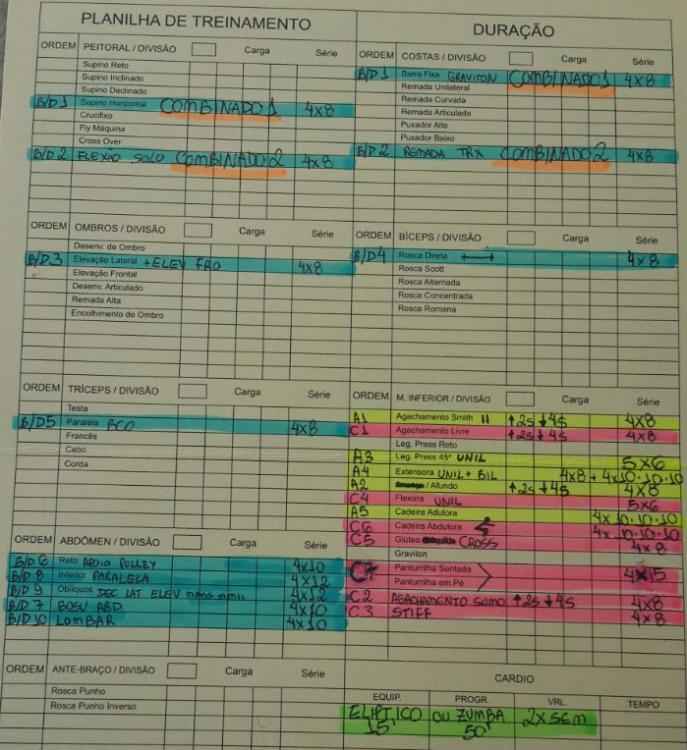 PLANILHA DE TREINAMENTO
DURAÇÃO
ORDEM PEITORAL / DIVISÃO Carga Série
Supino Reto
Supino Inclinado
Supino Declinado
B/D1 Supino Horizontal COMBINADO 1 4x8
Crucifixo
Fly Máquina
Cross Over
B/D2 FLEXÃO SOLO COMBINADO 2 4x8
ORDEM COSTAS / DIVISÃO Carga Série
B/D1 Barra Fixa GRAVITON COMBINADO 1 4x8
Remada Unilateral
Remada Curvada
Remada Articulada
Puxador Alto
Puxador Baixo
B/D2 REMADA TRX COMBINADO 2 4x8
ORDEM OMBROS / DIVISÃO Carga Série
Desenv. de Ombro
B/D3 Elevação Lateral + ELEV FRO 4x8
Elevação Frontal
Desenv. Articulado
Remada Alta
Encolhimento de Ombro
ORDEM BÍCEPS / DIVISÃO Carga Série
B/D4 Rosca Direta 4x8
Rosca Scott
Rosca Alternada
Rosca Concentrada
Rosca Romana
ORDEM TRÍCEPS / DIVISÃO Carga Série
Testa
B/D5 Paralela BCO 4x8
Francês
Cabo
Corda
ORDEM M. INFERIOR / DIVISÃO Carga Série
A1 Agachamento Smith II ↑2S ↓4S 4x8
C1 Agachamento Livre ↑2S ↓4S 4x8
Leg. Press Reto
A3 Leg. Press 45° UNIL 5x6
A4 Extensora UNIL + BIL 4x8 + 4x10.10.10
A2 / Afundo ↑2S ↓4S 4x8
C4 Flexora UNIL 5x6
A5 Cadeira Adutora 4x10.10.10
C6 Cadeira Abdutora 4x10.10.10
C5 Glúteo CROSS 4x8
Graviton
C7 Panturrilha Sentada 4x15
Panturrilha em Pé
C2 AGACHAMENTO SUMO ↑2S ↓4S 4x8
C3 STIFF 4x8
ORDEM ABDÔMEN / DIVISÃO Carga Série
B/D6 Reto APOIO PULLEY 4x10
B/D8 Inferior PARALELA 4x12
B/D9 Oblíquos DEC LAT ELEV 4x12
B/D7 BOSU ABD 4x10
B/D10 LOMBAR 4x10
ORDEM ANTE-BRAÇO / DIVISÃO Carga Série
Rosca Punho
Rosca Punho Inverso
CARDIO
EQUIP. PROGR. VRL. TEMPO
ELIPTICO OU ZUMBA 2x SEM
15' 50'